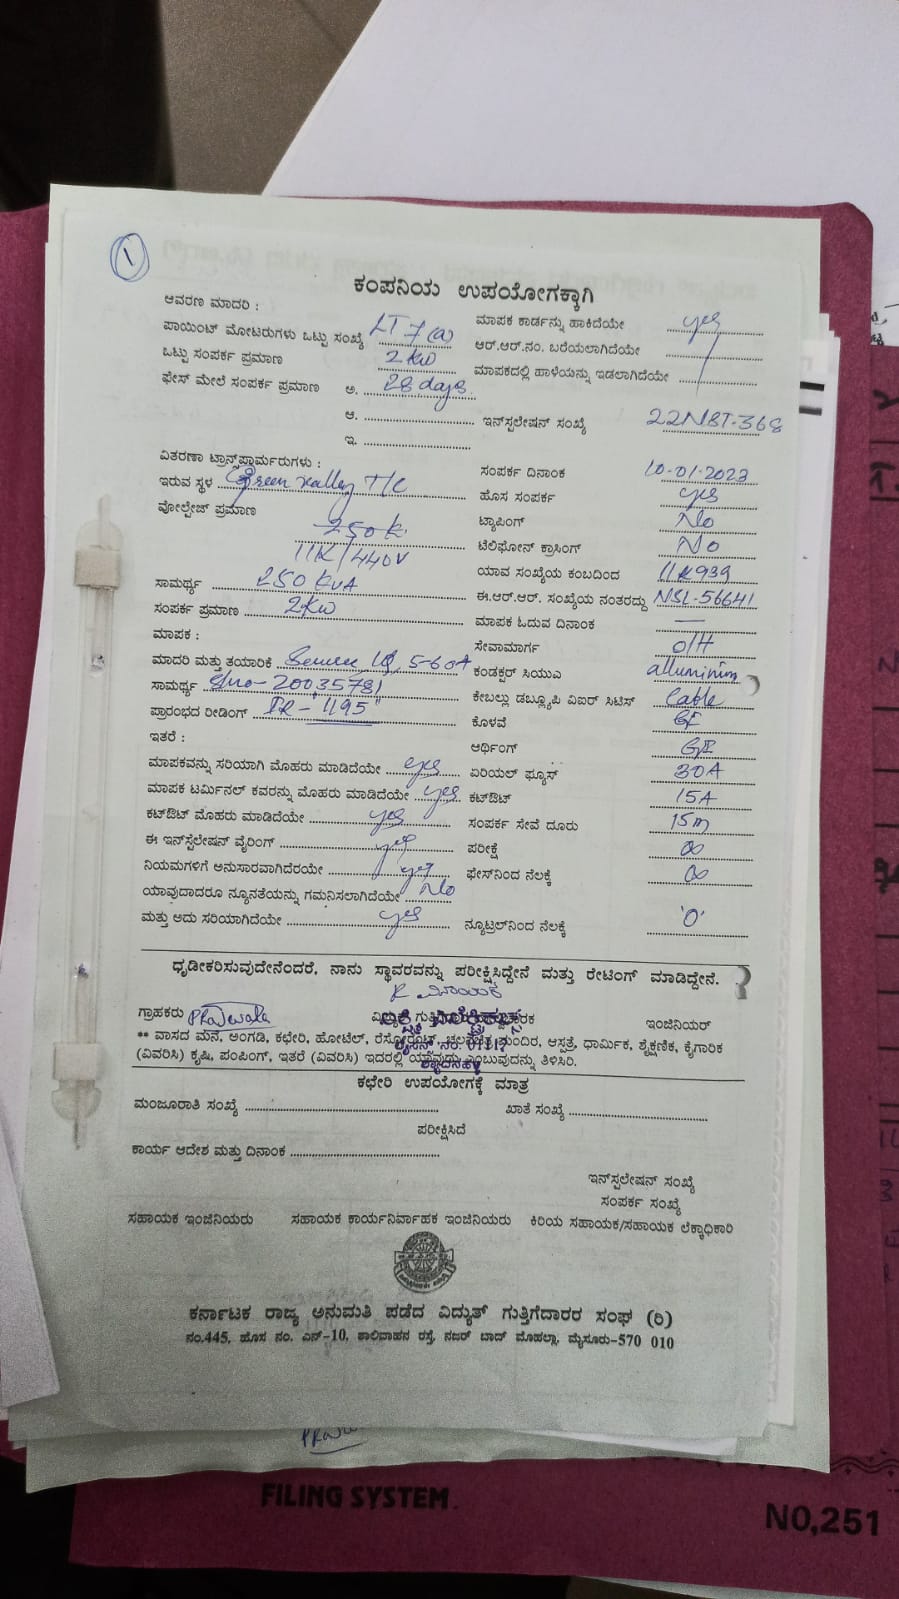 ೧
ಕಂಪನಿಯ ಉಪಯೋಗಕ್ಕಾಗಿ
ಆವರಣ ಮಾದರಿ :
ಪಾಯಿಂಟ್ ಮೋಟರುಗಳು ಒಟ್ಟು ಸಂಖ್ಯೆ LT 7 (a)
ಒಟ್ಟು ಸಂಪರ್ಕ ಪ್ರಮಾಣ 2 KW
ಫೇಸ್ ಮೇಲೆ ಸಂಪರ್ಕ ಪ್ರಮಾಣ ಅ. 28 days
ಆ.
ಇ.
ಮಾಪಕ ಕಾರ್ಡನ್ನು ಹಾಕಿದೆಯೇ yes
ಆರ್.ಆರ್.ನಂ. ಬರೆಯಲಾಗಿದೆಯೇ
ಮಾಪಕದಲ್ಲಿ ಹಾಳೆಯನ್ನು ಇಡಲಾಗಿದೆಯೇ
ಇನ್‌ಸ್ಟಲೇಷನ್ ಸಂಖ್ಯೆ 22NBT-368
ವಿತರಣಾ ಟ್ರಾನ್ಸ್‌ಫಾರ್ಮರುಗಳು :
ಇರುವ ಸ್ಥಳ Green valley T/C
ವೋಲ್ಟೇಜ್ ಪ್ರಮಾಣ 250 K
11K/440V
ಸಾಮರ್ಥ್ಯ 250 KVA
ಸಂಪರ್ಕ ಪ್ರಮಾಣ 2KW
ಮಾಪಕ :
ಮಾದರಿ ಮತ್ತು ತಯಾರಿಕೆ 5-60A
ಸಾಮರ್ಥ್ಯ S/no-20035781
ಪ್ರಾರಂಭದ ರೀಡಿಂಗ್ IR-"1195"
ಇತರೆ :
ಮಾಪಕವನ್ನು ಸರಿಯಾಗಿ ಮೊಹರು ಮಾಡಿದೆಯೇ yes
ಮಾಪಕ ಟರ್ಮಿನಲ್ ಕವರನ್ನು ಮೊಹರು ಮಾಡಿದೆಯೇ yes
ಕಟ್‌ಔಟ್ ಮೊಹರು ಮಾಡಿದೆಯೇ yes
ಈ ಇನ್‌ಸ್ಟಲೇಷನ್ ವೈರಿಂಗ್ yes
ನಿಯಮಗಳಿಗೆ ಅನುಸಾರವಾಗಿದೆರಯೇ yes
ಯಾವುದಾದರೂ ನ್ಯೂನತೆಯನ್ನು ಗಮನಿಸಲಾಗಿದೆಯೇ No
ಮತ್ತು ಅದು ಸರಿಯಾಗಿದೆಯೇ yes
ಸಂಪರ್ಕ ದಿನಾಂಕ 10-01-2023
ಹೊಸ ಸಂಪರ್ಕ yes
ಟ್ಯಾಪಿಂಗ್ No
ಟೆಲಿಫೋನ್ ಕ್ರಾಸಿಂಗ್ No
ಯಾವ ಸಂಖ್ಯೆಯ ಕಂಬದಿಂದ 11K939
ಈ.ಆರ್.ಆರ್. ಸಂಖ್ಯೆಯ ನಂತರದ್ದು NSL-56641
ಮಾಪಕ ಓದುವ ದಿನಾಂಕ —
ಸೇವಾಮಾರ್ಗ O/H
ಕಂಡಕ್ಟರ್ ಸಿಯುಎ alluminim
ಕೇಬಲ್ಲು ಡಬ್ಲ್ಯೂಪಿ ವಿಐರ್ ಸಿಟಿಸ್ Cable
ಕೊಳವೆ GI
ಆರ್ಥಿಂಗ್ GI
ಏರಿಯಲ್ ಫ್ಯೂಸ್ 30A
ಕಟ್‌ಔಟ್ 15A
ಸಂಪರ್ಕ ಸೇವೆ ದೂರು 15m
ಪರೀಕ್ಷೆ ∞
ಫೇಸ್‌ನಿಂದ ನೆಲಕ್ಕೆ ∞
ನ್ಯೂಟ್ರಲ್‌ನಿಂದ ನೆಲಕ್ಕೆ 'O'
ಧೃಡೀಕರಿಸುವುದೇನೆಂದರೆ, ನಾನು ಸ್ಥಾವರವನ್ನು ಪರೀಕ್ಷಿಸಿದ್ದೇನೆ ಮತ್ತು ರೇಟಿಂಗ್ ಮಾಡಿದ್ದೇನೆ.
K ವಿನಾಯಕ
ಗ್ರಾಹಕರು ವಿದ್ಯುತ್ ಗುತ್ತಿಗೆದಾರ ಇಂಜಿನಿಯರ್
** ವಾಸದ ಮನೆ, ಅಂಗಡಿ, ಕಛೇರಿ, ಹೋಟೆಲ್, ರೆಸ್ಟೋರೆಂಟ್, ಚಲನಚಿತ್ರ ಮಂದಿರ, ಆಸ್ಪತ್ರೆ, ಧಾರ್ಮಿಕ, ಶೈಕ್ಷಣಿಕ, ಕೈಗಾರಿಕ
(ವಿವರಿಸಿ) ಕೃಷಿ, ಪಂಪಿಂಗ್, ಇತರೆ (ವಿವರಿಸಿ) ಇದರಲ್ಲಿ ಯಾವುದು ಎಂಬುವುದನ್ನು ತಿಳಿಸಿರಿ.
ಕಛೇರಿ ಉಪಯೋಗಕ್ಕೆ ಮಾತ್ರ
ಮಂಜೂರಾತಿ ಸಂಖ್ಯೆ ಖಾತೆ ಸಂಖ್ಯೆ
ಪರೀಕ್ಷಿಸಿದೆ
ಕಾರ್ಯ ಆದೇಶ ಮತ್ತು ದಿನಾಂಕ
ಇನ್‌ಸ್ಟಲೇಷನ್ ಸಂಖ್ಯೆ
ಸಂಪರ್ಕ ಸಂಖ್ಯೆ
ಸಹಾಯಕ ಇಂಜಿನಿಯರು ಸಹಾಯಕ ಕಾರ್ಯನಿರ್ವಾಹಕ ಇಂಜಿನಿಯರು ಕಿರಿಯ ಸಹಾಯಕ/ಸಹಾಯಕ ಲೆಕ್ಕಾಧಿಕಾರಿ
ಕರ್ನಾಟಕ ರಾಜ್ಯ ಅನುಮತಿ ಪಡೆದ ವಿದ್ಯುತ್ ಗುತ್ತಿಗೆದಾರರ ಸಂಘ (ರಿ)
ನಂ.445, ಹೊಸ ನಂ. ಎನ್-10, ಶಾಲಿವಾಹನ ರಸ್ತೆ, ನಜರ್ ಬಾದ್ ಮೊಹಲ್ಲಾ, ಮೈಸೂರು-570 010
FILING SYSTEM
NO,251